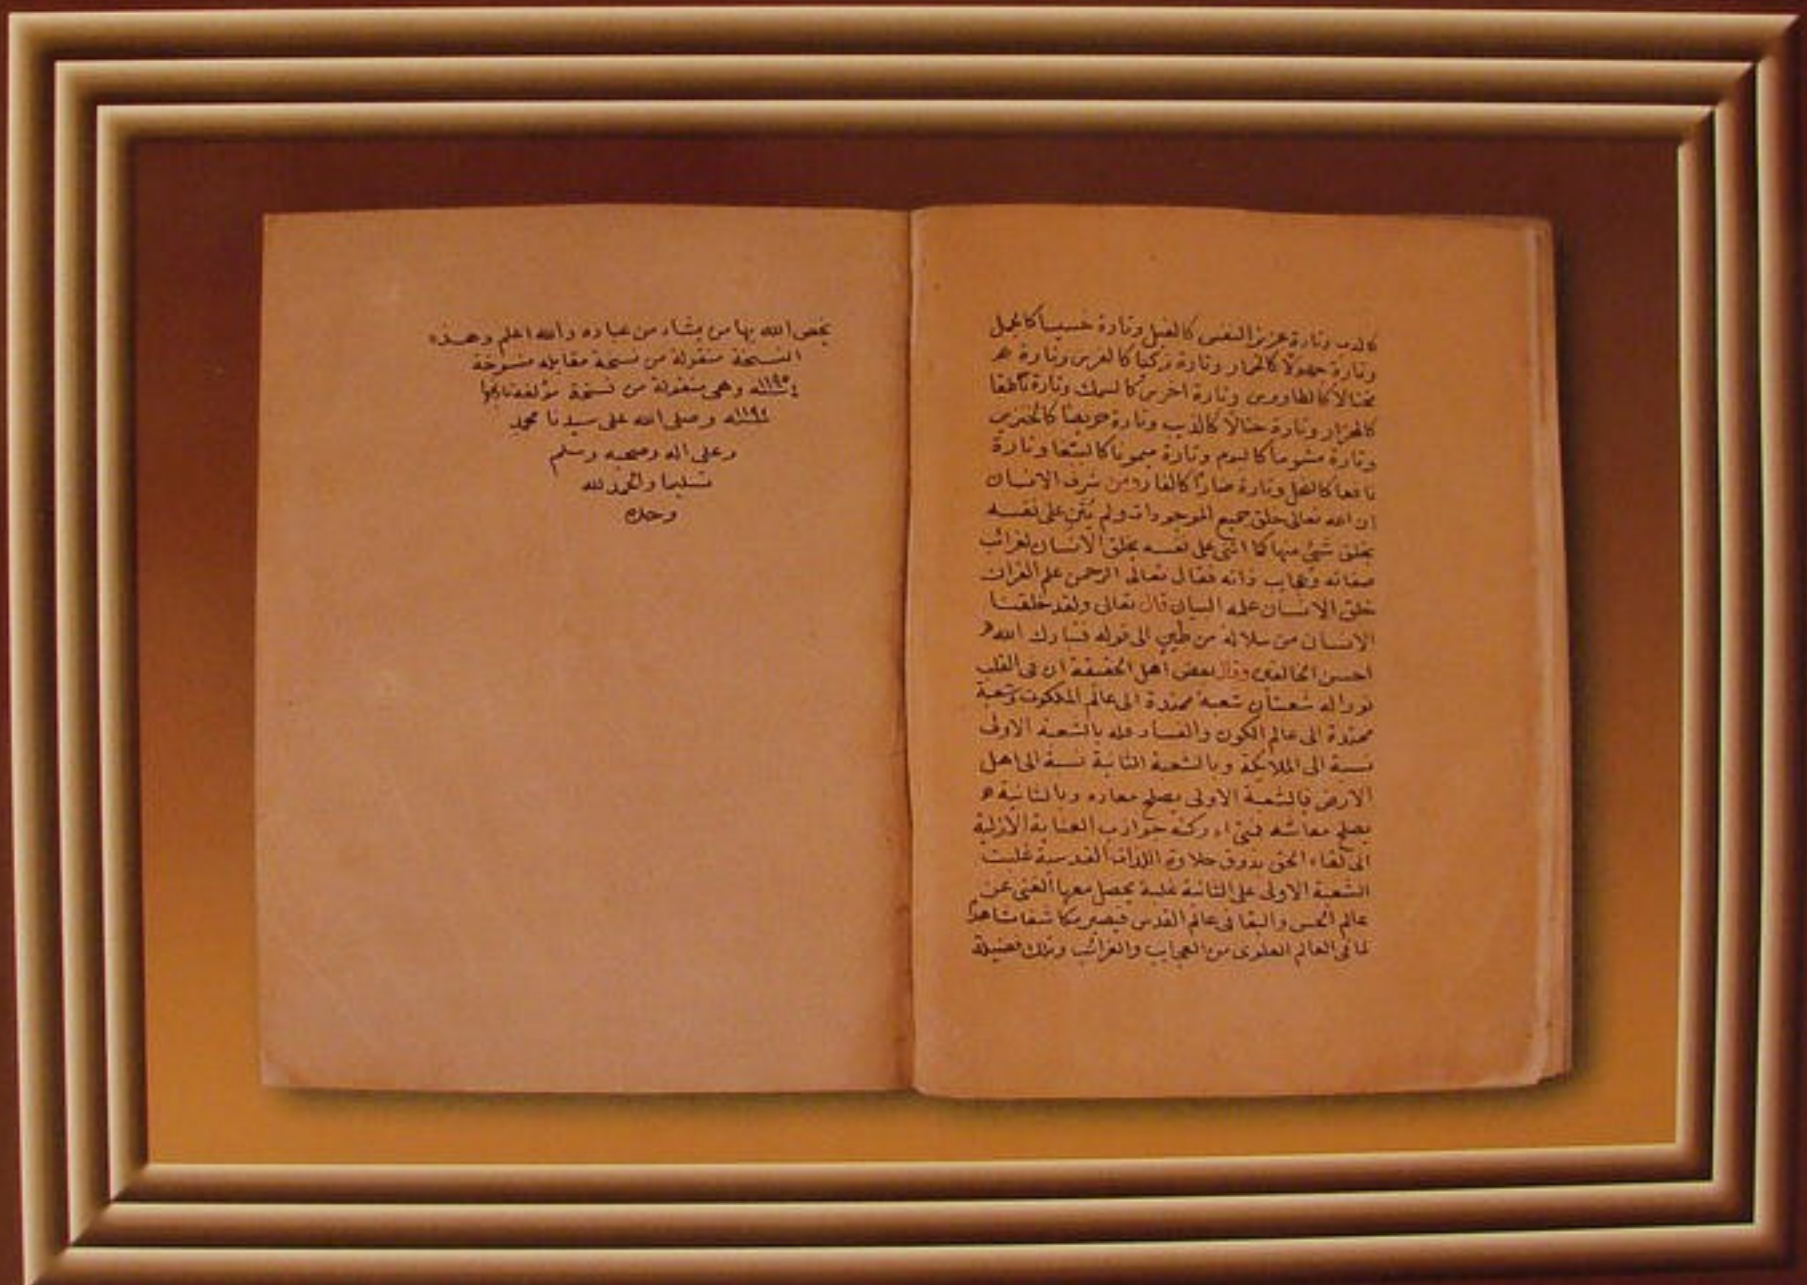 كالدب وتارة عزيز النفس كالفيل وتارة خسيسا كالجمل
وتارة جهولا كالحمار وتارة زكيا كالفرس وتارة
مختالا كالطاووس وتارة اخرس كالسمك وتارة ناطقا
كالهزار وتارة ختالا كالذيب وتارة حريصا كالخنزير
وتارة مشوما كالبوم وتارة ميمونا كالببغا وتارة
نافعا كالنحل وتارة ضارا كالفار ومن شرف الانسان
ان الله تعالى خلق جميع الموجودات ولم يثن على نفسه
بخلق شئ منها كما اثنى على نفسه بخلق الانسان لغرائب
صفاته وعجايب ذاته فقال تعالى الرحمن علم القران
خلق الانسان علمه البيان قال تعالى ولقد خلقنا
الانسان من سلالة من طين الى قوله فتبارك الله
احسن الخالقين وقال بعض اهل الحقيقة ان فى القلب
نورا له شعبتان شعبة ممتدة الى عالم الملكوت وشعبة
ممتدة الى عالم الكون والفساد فله بالشعبة الاولى
نسبة الى الملائكة وبالشعبة الثانية نسبة الى اهل
الارض فبالشعبة الاولى يصلح معاده وبالثانية
يصلح معاشه فمتى ادركته جواذب العناية الازلية
الى لقاء الحق بذوق حلاوة اللذات القدسية غلبت
الشعبة الاولى على الثانية غلبة يحصل معها الغنى عن
عالم الحس والبقا فى عالم القدس فيصير مكاشفا مشاهدا
لما فى العالم العلوى من العجايب والغرائب وتلك فضيلة
يخص الله بها من يشاء من عباده والله اعلم وهذه
النسخة منقولة من نسخة مقابله منسوخة
وهى منقولة من نسخة مؤلفه
وصلى الله على سيدنا محمد
وعلى اله وصحبه وسلم
تسليما والحمد لله
وحده